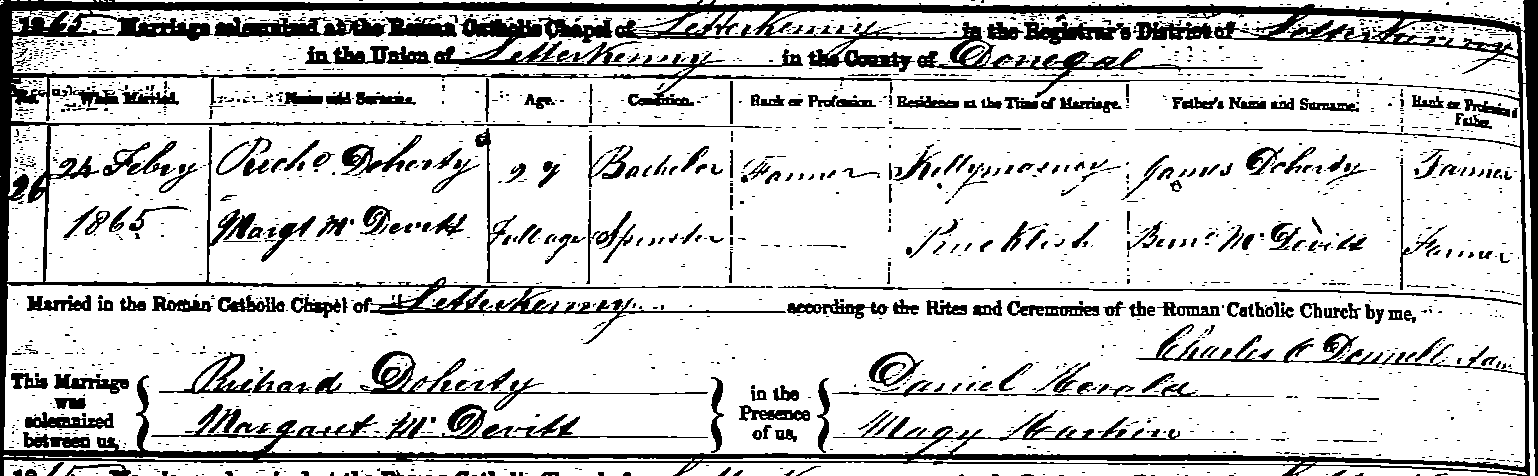 1865. Marriage solemnized at the Roman Catholic Chapel of Letterkenny in the Registrar's District of Letterkenny
in the Union of Letterkenny in the County of Donegal
No. When Married. Name and Surname. Age. Condition. Rank or Profession. Residence at the Time of Marriage. Father's Name and Surname. Rank or Profession of Father.
26 24 Febry Richd Doherty 27 Bachelor Farmer James Doherty Farmer
1865 Margt Mc Devitt Full age Spinster Bernd Mc Devitt Farmer
Married in the Roman Catholic Chapel of Letterkenny according to the Rites and Ceremonies of the Roman Catholic Church by me,
Charles O Donnell Adm
This Marriage was solemnized between us, Richard Doherty in the Presence of us, Daniel Herald
Margaret Mc Devitt Magy Harkin